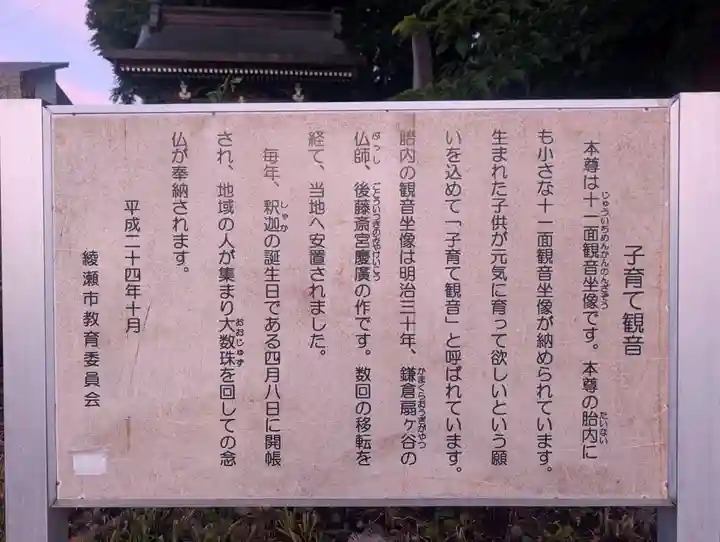 子育て観音
本尊は十一面観音坐像です。本尊の胎内に
も小さな十一面観音坐像が納められています。
生まれた子供が元気に育って欲しいという願
いを込めて「子育て観音」と呼ばれています。
胎内の観音坐像は明治三十年、鎌倉扇ヶ谷の
仏師、後藤斎宮慶廣の作です。数回の移転を
経て、当地へ安置されました。
毎年、釈迦の誕生日である四月八日に開帳
され、地域の人が集まり大数珠を回しての念
仏が奉納されます。
平成二十四年十月
綾瀬市教育委員会